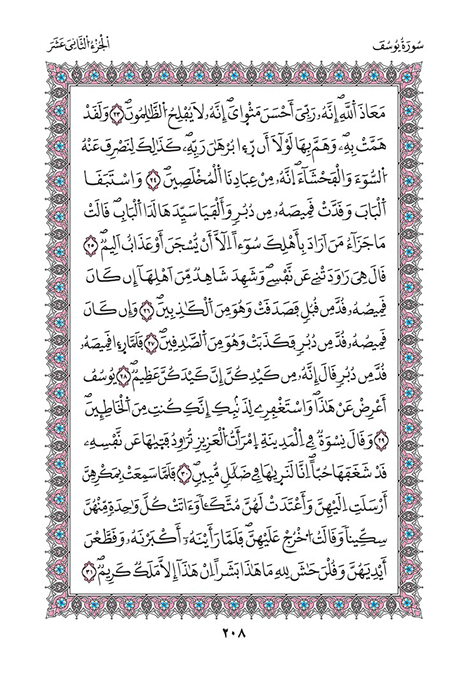 سُورَةُ يُوسُفَ
اَلْجُزْءُ الثَّانِيَ عَشَرَ
مَعَاذَ اَللَّهِ إِنَّهُۥ رَبِّيَ أَحْسَنَ مَثْوَايَ إِنَّهُۥ لَا يُفْلِحُ اُلظَّالِمُونَ ٢٣ وَلَقَدْ
هَمَّتْ بِهِۦ وَهَمَّ بِهَا لَوْلَا أَن رَّءِا بُرْهَٰنَ رَبِّهِۦ كَذَٰلِكَ لِنَصْرِفَ عَنْهُ
اُلسُّوٓءَ وَالْفَحْشَآءَ اِنَّهُۥ مِنْ عِبَادِنَا اَلْمُخْلَصِينَ ٢٤ وَاسْتَبَقَا
اَلْبَابَ وَقَدَّتْ قَمِيصَهُۥ مِن دُبُرٍ وَأَلْفَيَا سَيِّدَهَا لَدَا اَلْبَابِ قَالَتْ
مَا جَزَآءُ مَنَ اَرَادَ بِأَهْلِكَ سُوٓءاً اِلَّا أَنْ يُّسْجَنَ أَوْ عَذَابٌ اَلِيمٌ ٢٥
قَالَ هِيَ رَٰوَدَتْنِي عَن نَّفْسِي وَشَهِدَ شَاهِدٌ مِّنَ اَهْلِهَا إِن كَانَ
قَمِيصُهُۥ قُدَّ مِن قُبُلٍ فَصَدَقَتْ وَهُوَ مِنَ اَلْكَٰذِبِينَ ٢٦ وَإِن كَانَ
قَمِيصُهُۥ قُدَّ مِن دُبُرٍ فَكَذَبَتْ وَهُوَ مِنَ اَلصَّٰدِقِينَ ٢٧ فَلَمَّا رَءِا قَمِيصَهُۥ
قُدَّ مِن دُبُرٍ قَالَ إِنَّهُۥ مِن كَيْدِكُنَّ إِنَّ كَيْدَكُنَّ عَظِيمٌ ٢٨ يُوسُفُ
أَعْرِضْ عَنْ هَٰذَا وَاسْتَغْفِرِي لِذَنۢبِكِ إِنَّكِ كُنتِ مِنَ اَلْخَاطِـِٕينَ
٢٩ وَقَالَ نِسْوَةٌ فِي اِلْمَدِينَةِ اِمْرَأَتُ اُلْعَزِيزِ تُرَٰوِدُ فَتَيٰهَا عَن نَّفْسِهِۦ
قَدْ شَغَفَهَا حُبّاً اِنَّا لَنَرَيٰهَا فِي ضَلَٰلٍ مُّبِينٍ ٣٠ فَلَمَّا سَمِعَتْ بِمَكْرِهِنَّ
أَرْسَلَتِ اِلَيْهِنَّ وَأَعْتَدَتْ لَهُنَّ مُتَّكَـٔاً وَءَاتَتْ كُلَّ وَٰحِدَةٍ مِّنْهُنَّ
سِكِّيناً وَقَالَتُ اُخْرُجْ عَلَيْهِنَّ فَلَمَّا رَأَيْنَهُۥٓ أَكْبَرْنَهُۥ وَقَطَّعْنَ
أَيْدِيَهُنَّ وَقُلْنَ حَٰشَ لِلهِ مَا هَٰذَا بَشَراً اِنْ هَٰذَا إِلَّا مَلَكٌ كَرِيمٌ ٣١
٢٠٨